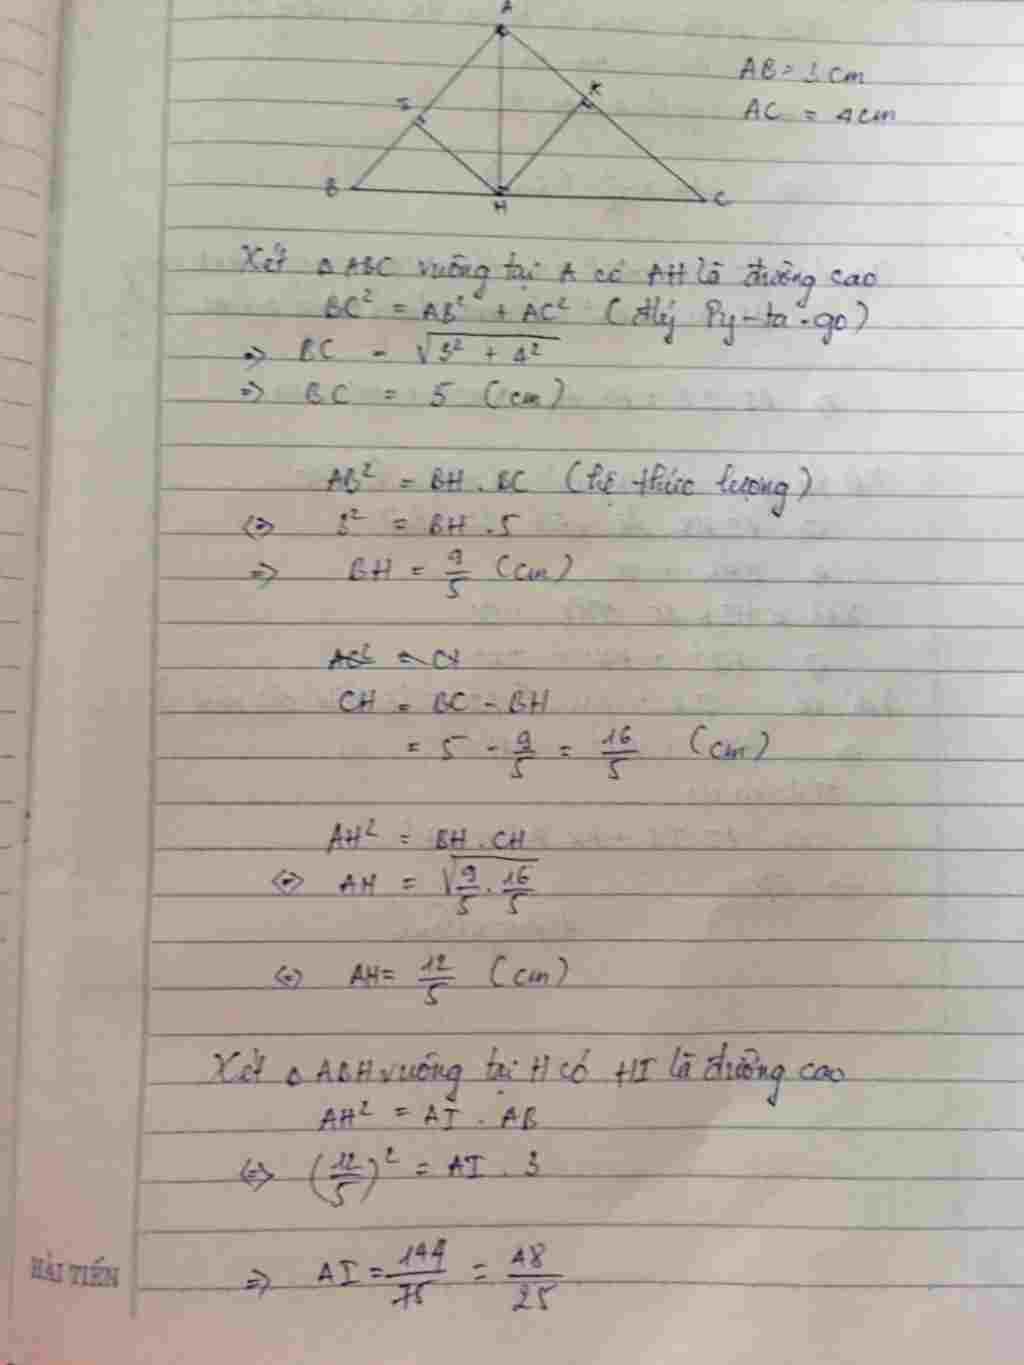 A
AB = 3 cm
K
AC = 4cm
I
B
H
C
Xét Δ ABC vuông tại A có AH là đường cao
BC² = AB² + AC² (đlý Py-ta-go)
=> BC = √(3² + 4²)
=> BC = 5 (cm)
AB² = BH . BC (hệ thức lượng)
<=> 3² = BH . 5
=> BH = 9/5 (cm)
CH = BC - BH
= 5 - 9/5 = 16/5 (cm)
AH² = BH . CH
<=> AH = √(9/5 . 16/5)
<=> AH = 12/5 (cm)
Xét Δ ABH vuông tại H có HI là đường cao
AH² = AI . AB
<=> (12/5)² = AI . 3
=> AI = 144/75 = 48/25
HẢI TIẾN